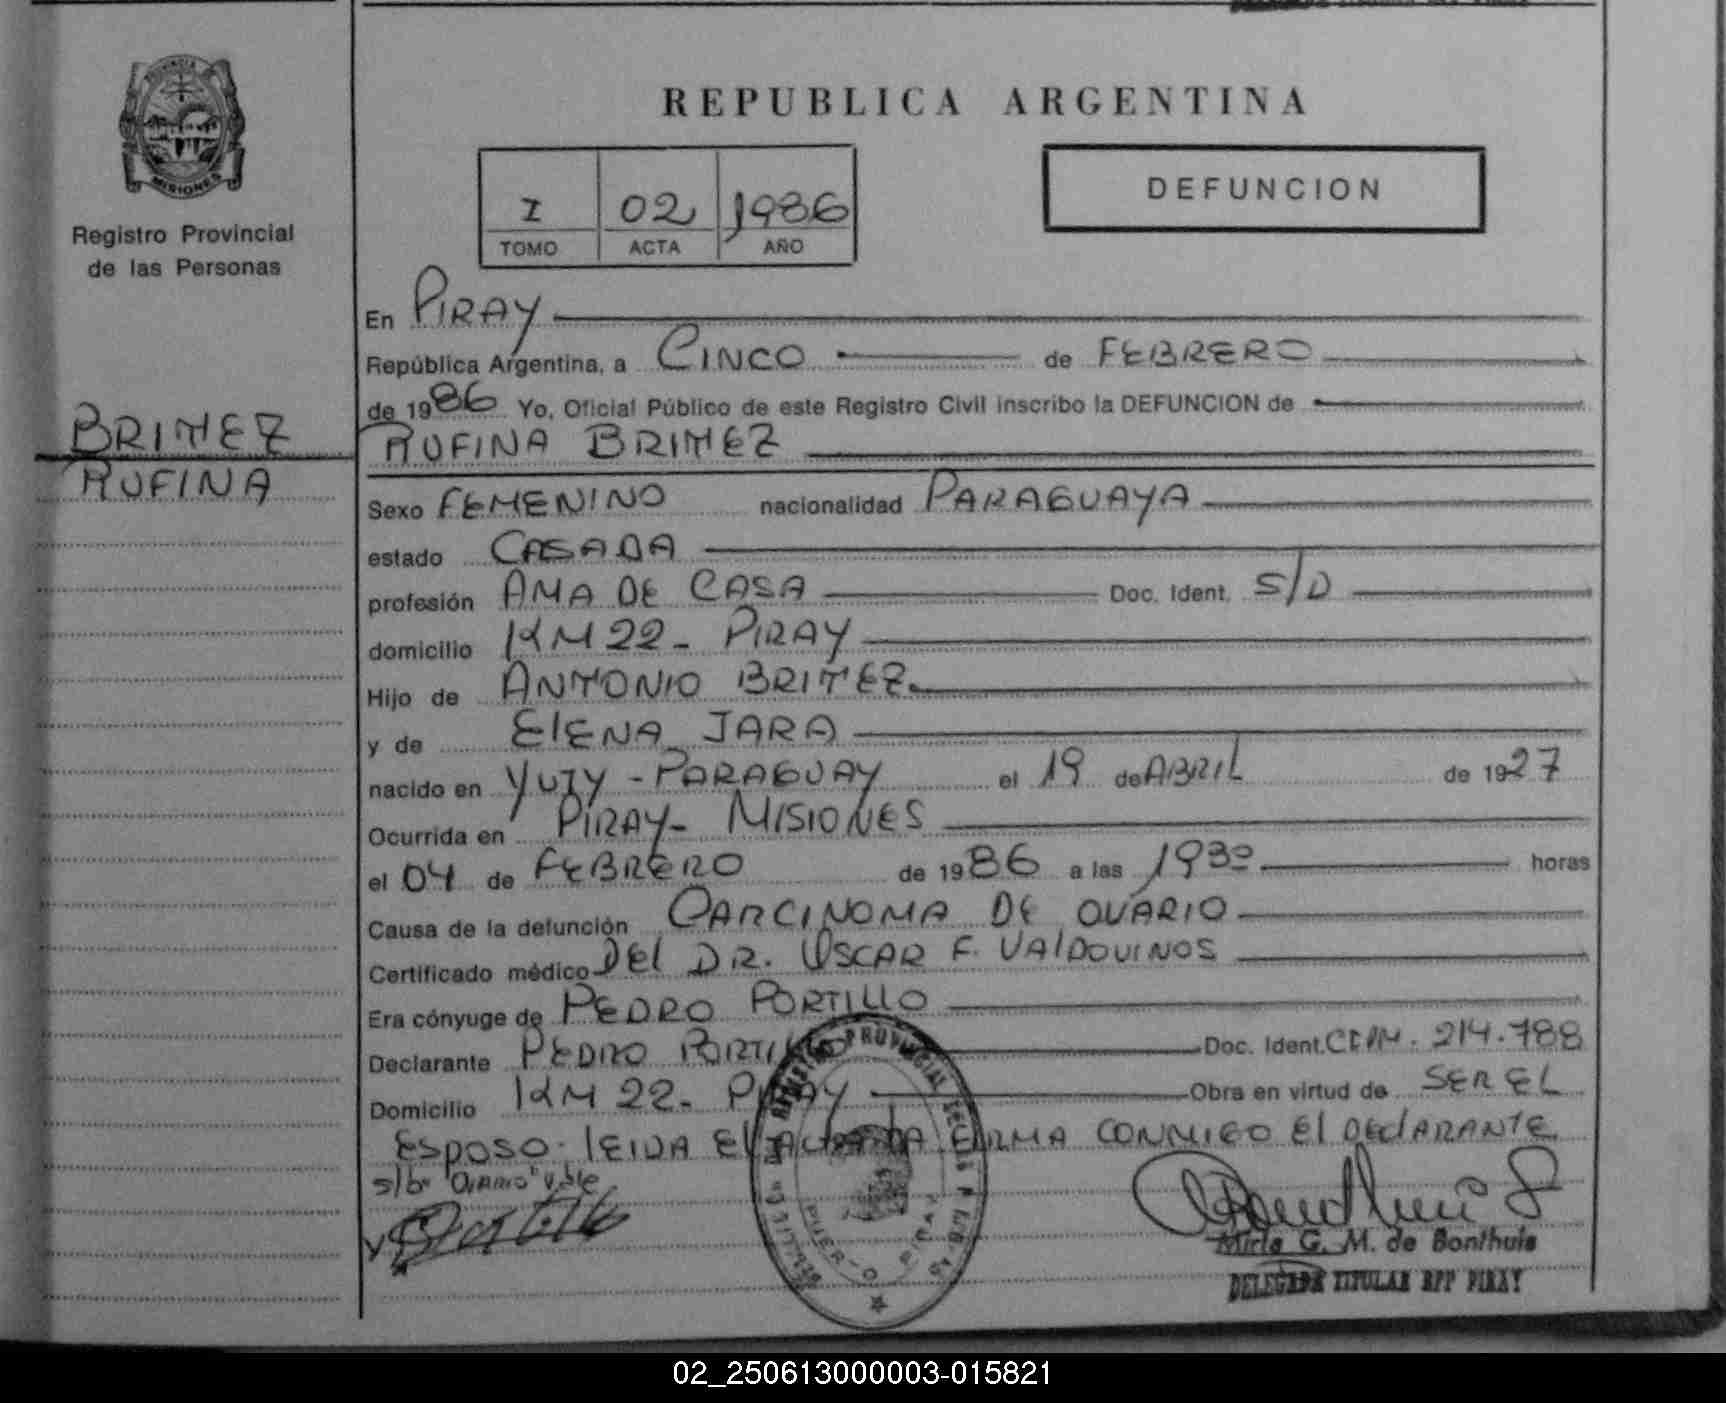 REPUBLICA ARGENTINA
PROVINCIA
MISIONES
Registro Provincial
de las Personas
I 02 1986
TOMO ACTA AÑO
DEFUNCION
BRITEZ
RUFINA
En PIRAY
República Argentina, a CINCO de FEBRERO
de 1986 Yo, Oficial Público de este Registro Civil inscribo la DEFUNCION de
RUFINA BRITEZ
Sexo FEMENINO nacionalidad PARAGUAYA
estado CASADA
profesión AMA DE CASA Doc. Ident. S/D
domicilio KM 22- PIRAY
Hijo de ANTONIO BRITEZ
y de ElENA JARA
nacido en YUTY - PARAGUAY el 19 de ABRIL de 1927
Ocurrida en PIRAY- MISIONES
el 04 de FEBRERO de 1986 a las 1930 horas
Causa de la defunción CARCINOMA DE OVARIO
Certificado médico DEl DR. OSCAR F. VAlDOVINOS
Era cónyuge de PEDRO PORTILLO
Declarante PEDRO PORTILLO Doc. Ident. 214.788
Domicilio KM 22- PIRAY Obra en virtud de SER EL
ESPOSO. lEIDA El ACTA LA FIRMA CONMIGO El DEClARANTE
s/b "OVARIO" Vale
Mirta G. M. de Bonthuis
DELEGADA TITULAR RPP PIRAY
02_250613000003-015821